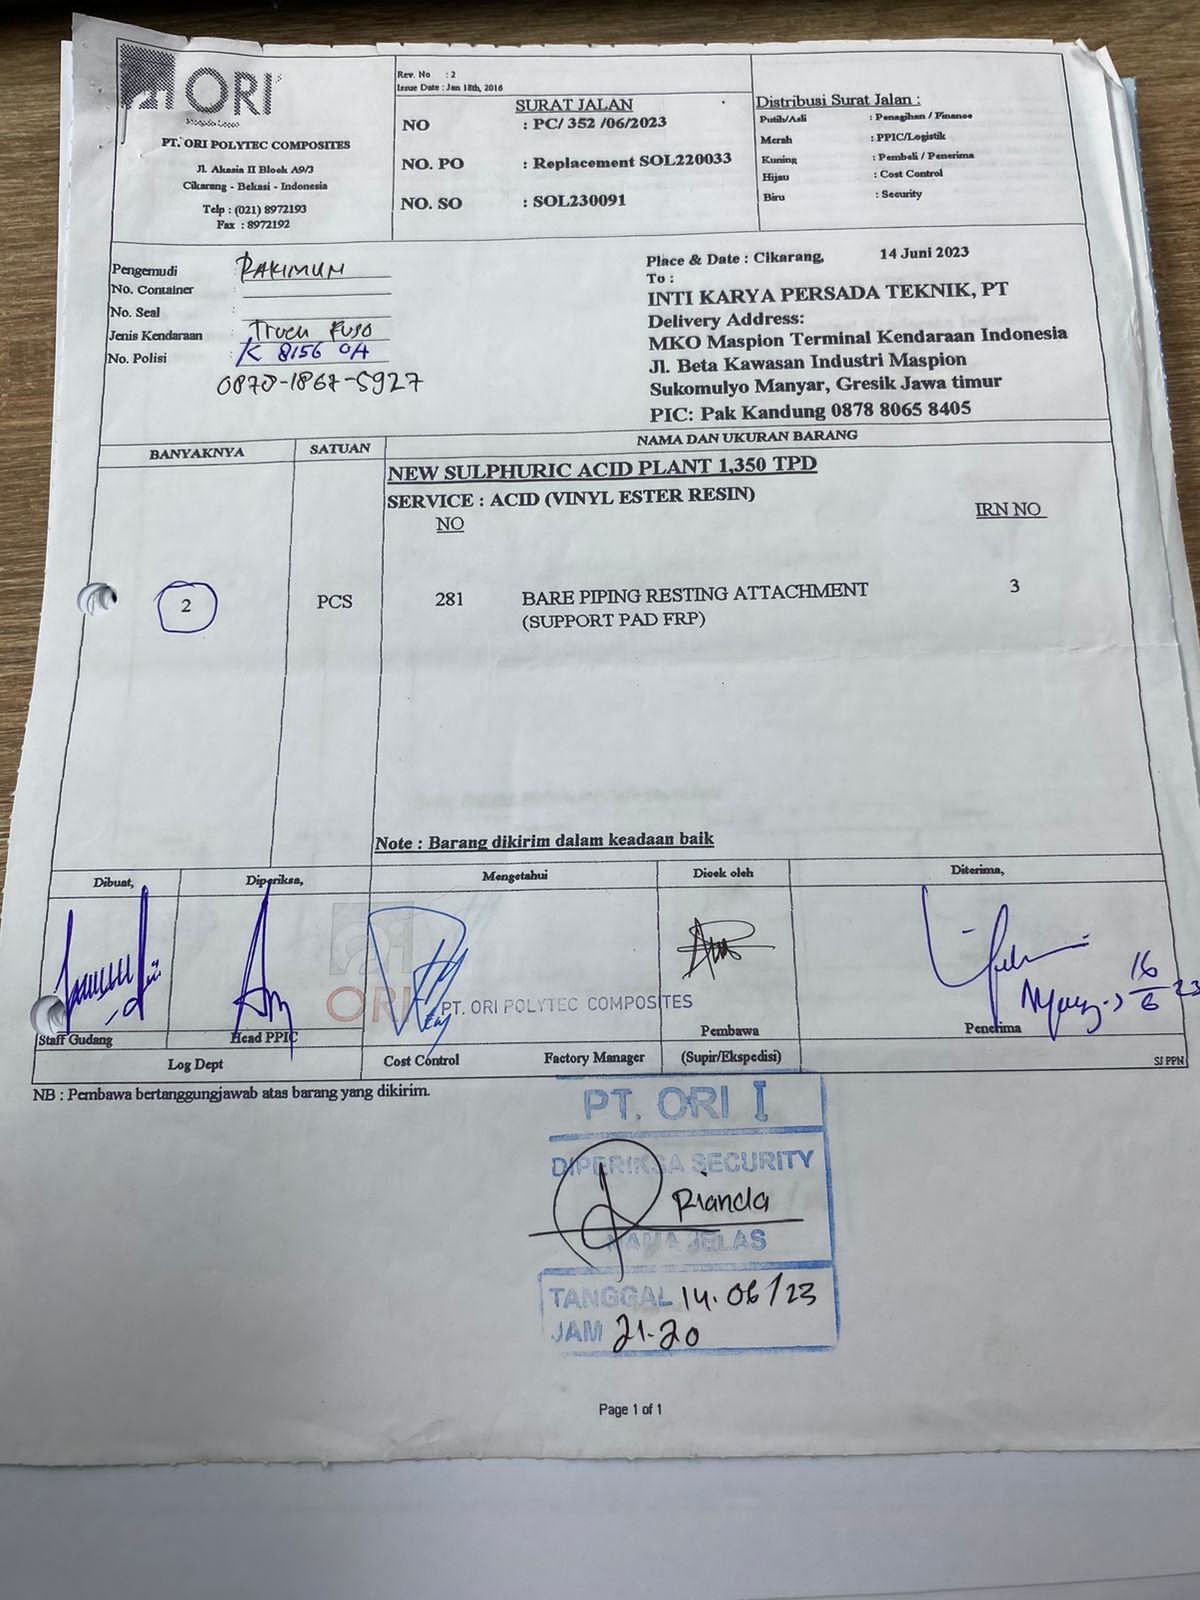 ORI
PT. ORI POLYTEC COMPOSITES
Jl. Akasia II Block A9/3
Cikarang - Bekasi - Indonesia
Telp : (021) 8972193
Fax : 8972192
Rev. No : 2
Issue Date : Jan 18th, 2016
SURAT JALAN
NO : PC/ 352 /06/2023
NO. PO : Replacement SOL220033
NO. SO : SOL230091
Distribusi Surat Jalan :
Putih/Asli : Penagihan / Finance
Merah : PPIC/Logistik
Kuning : Pembeli / Penerima
Hijau : Cost Control
Biru : Security
Pengemudi : RAKIMUN
No. Container :
No. Seal :
Jenis Kendaraan : Truck Fuso
No. Polisi : K 8156 OA
Place & Date : Cikarang, 14 Juni 2023
To :
INTI KARYA PERSADA TEKNIK, PT
Delivery Address:
MKO Maspion Terminal Kendaraan Indonesia
Jl. Beta Kawasan Industri Maspion
Sukomulyo Manyar, Gresik Jawa timur
PIC: Pak Kandung 0878 8065 8405
BANYAKNYA SATUAN NAMA DAN UKURAN BARANG
NEW SULPHURIC ACID PLANT 1,350 TPD
SERVICE : ACID (VINYL ESTER RESIN)
NO IRN NO
2 PCS 281 BARE PIPING RESTING ATTACHMENT 3
(SUPPORT PAD FRP)
Note : Barang dikirim dalam keadaan baik
Dibuat, Diperiksa, Mengetahui Dicek oleh Diterima,
16/6 23
ORI PT. ORI POLYTEC COMPOSITES
Staff Gudang Head PPIC Pembawa Penerima
Log Dept Cost Control Factory Manager (Supir/Ekspedisi) SJ PPN
NB : Pembawa bertanggungjawab atas barang yang dikirim.
PT. ORI I
DIPERIKSA SECURITY
Rianda
NAMA JELAS
TANGGAL 14.06/23
JAM 21.20
Page 1 of 1